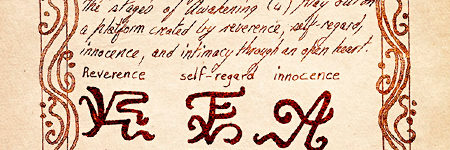 The stages of Awakening (4) play out on
a platform created by reverence, self-regard,
innocence, and intimacy through an open heart.
Reverence self-regard innocence